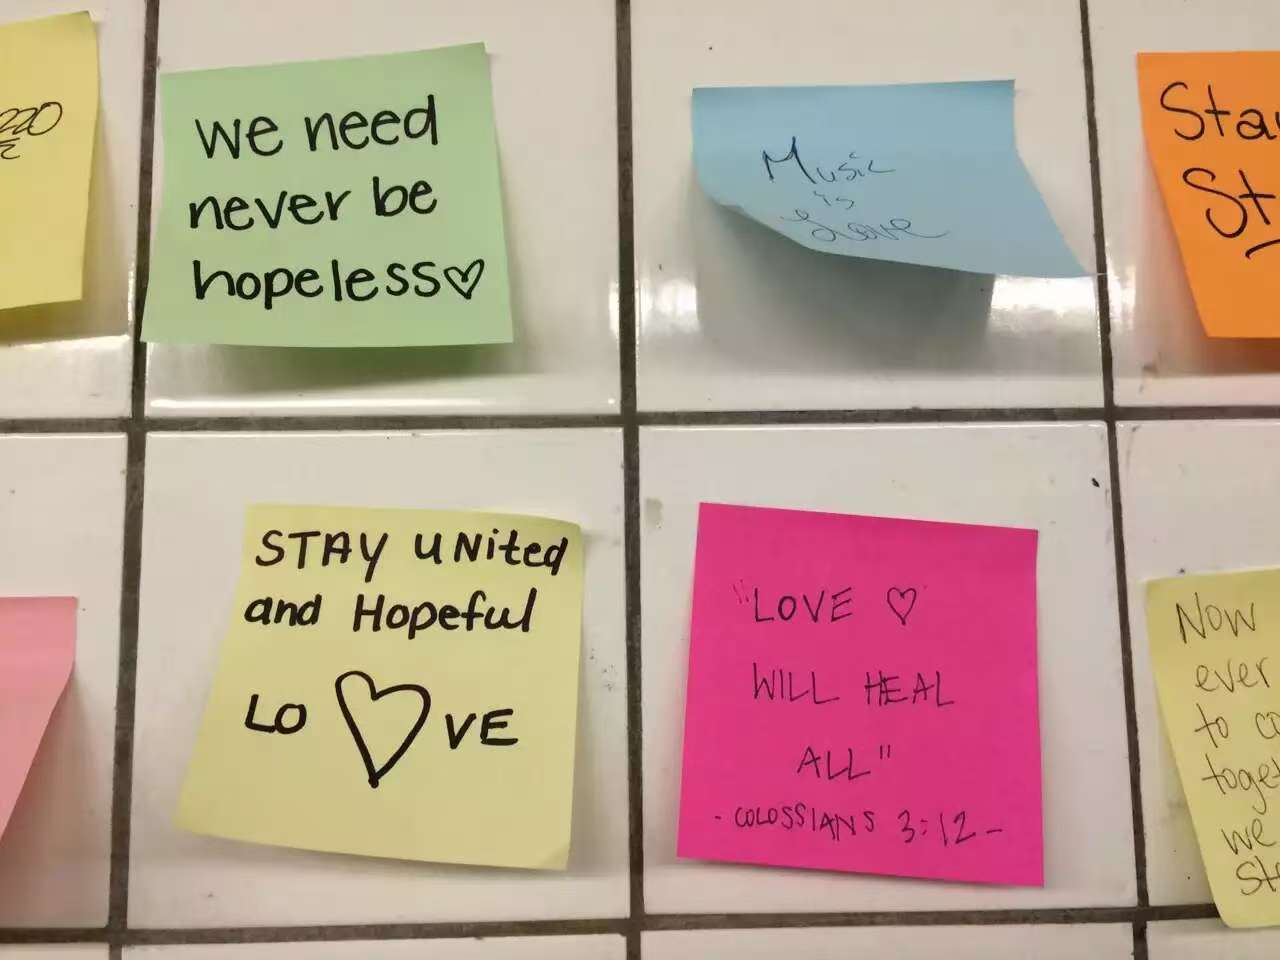 we need
never be
hopeless♡
Music
is
Love
STAY UNited
and Hopeful
LO♡VE
"LOVE ♡
WILL HEAL
ALL"
- COLOSSIANS 3:12 -
Now
ever
to
we